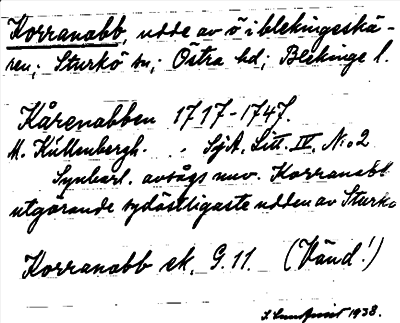 Korranabb, udde av ö i blekingeskä-
ren; Sturkö sn; Östra hd; Blekinge l.
Kårenabben 1717-1747.
M. Kullenbergh. . SjA. Litt. IV, N:o 2
Synbarl. avsågs nuv. Korranabb
utgörande sydöstligaste udden av Sturkö
Korranabb ek. G. 11. (Vänd!)
1938.